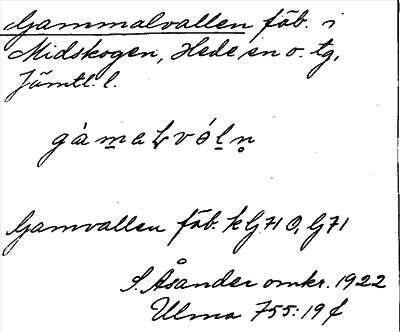 Gammalvallen fäb. i
Midskogen, Hede sn o. tg,
Jämtl. l.
gàmaLvólṇ
Gamvallen fäb. kG71 O, G71
S. Åsander omkr. 1922
Ulma 755:19 f